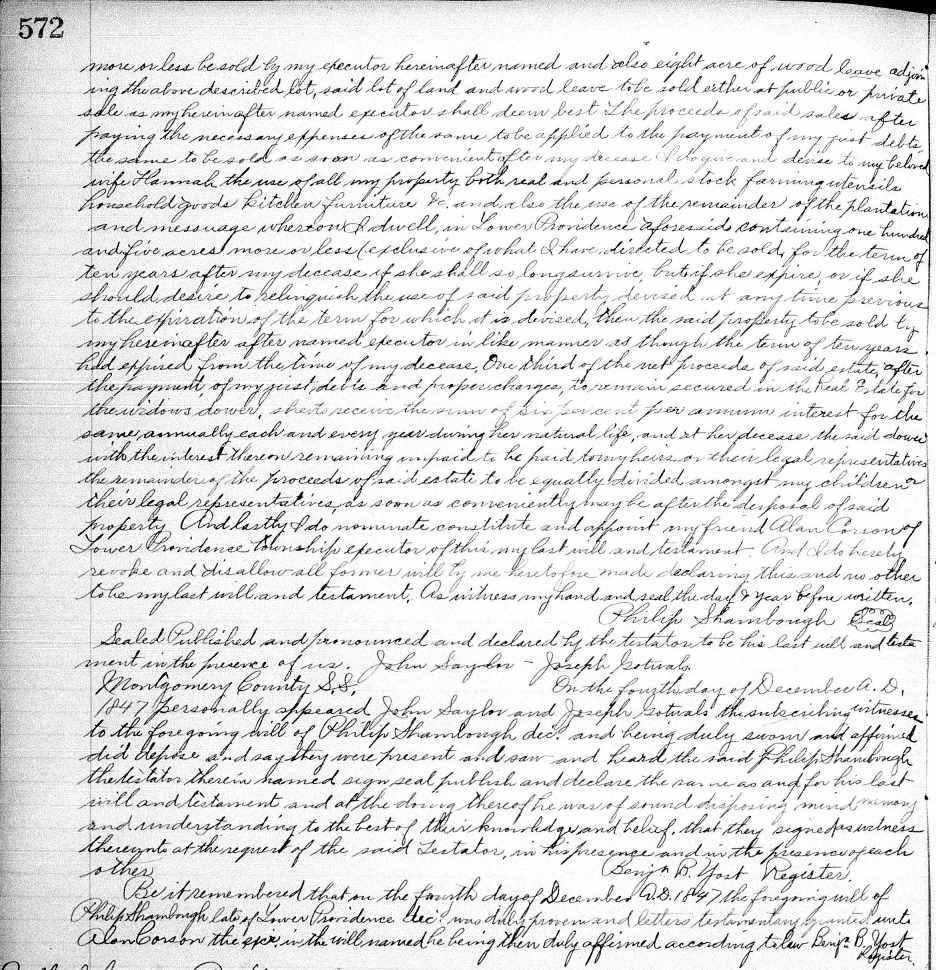 572
more or less be sold by my executor hereinafter named and also eight acre of wood leave adjoin
ing the above described lot, said lot of land and wood leave to be sold either at public or private
sale as my hereinafter named executor shall deem best The proceeds of said sales after
paying the necessary expenses of the same to be applied to the payment of my just debts,
the same to be sold as soon as convenient after my decease I do give and devise to my beloved
wife Hannah the use of all my property both real and personal stock farming utensils
household goods Kitchen furniture &c. and also the use of the remainder of the plantation
and messuage whereon I dwell, in Lower Providence aforesaid containing one hundred
and five acres more or less (exclusive of what I have directed to be sold, for the term of
ten years after my decease if she shall so long survive but if she expire or if she
should desire to relinquish the use of said property devised at any time previous
to the expiration of the term for which it is divised, then the said property to be sold by
my hereinafter after named executor in like manner as though the term of ten years
had expired from the time of my decease, One third of the net proceeds of said estate, after
the payment, of my just debts and proper charges, to remain secured in the Real Estate for
the widows dower, she to receive the sum of six per cent per annum interest for the
same, annually each and every year during her natural life, and at her decease the said dower
with the interest thereon remaining unpaid to be paid to my heirs or their legal representatives
the remainder of the proceeds of said estate to be equally divided amongst my children or
their legal representatives as soon as conveniently may be after the disposal of said
property And lastly I do nominate constitute and appoint my friend Alan Corson of
Lower Providence Township executor of this my last will and testament. And I do hereby
revoke and disallow all former will by me heretofore made declaring this and no other
to be my last will and testament. As witness my hand and seal the day & year before written.
Philip Shambough Seal
Sealed Published and pronounced and declared by the testator to be his last will and testa
ment in the presence of us. John Saylor - Joseph Gotwals
Montgomery County S.S. On the fourth day of December A.D.
1847 personally appeared John Saylor and Joseph Gotwals the subscribing witnesses
to the foregoing will of Philip Shambough decd. and being duly sworn and affirmed
did depose and say they were present and saw and heard the said Philip Shambough
the testator therein named sign seal publish and declare the same as and for his last
will and testament and at the doing thereof he was of sound disposing mind memory
and understanding to the best of their knowledge and belief. that they signed as witness
thereunto at the request of the said Testator, in his presence and in the presence of each
other Benjn. B. Yost Register.
Be it remembered that on the fourth day of December A.D. 1847 the foregoing will of
Philip Shambough late of Lower Providence decd. was duly proven and letters testamentary granted unto
Alan Corson the exr. in the will named he being then duly affirmed according to law Benjn. B. Yost
Register.